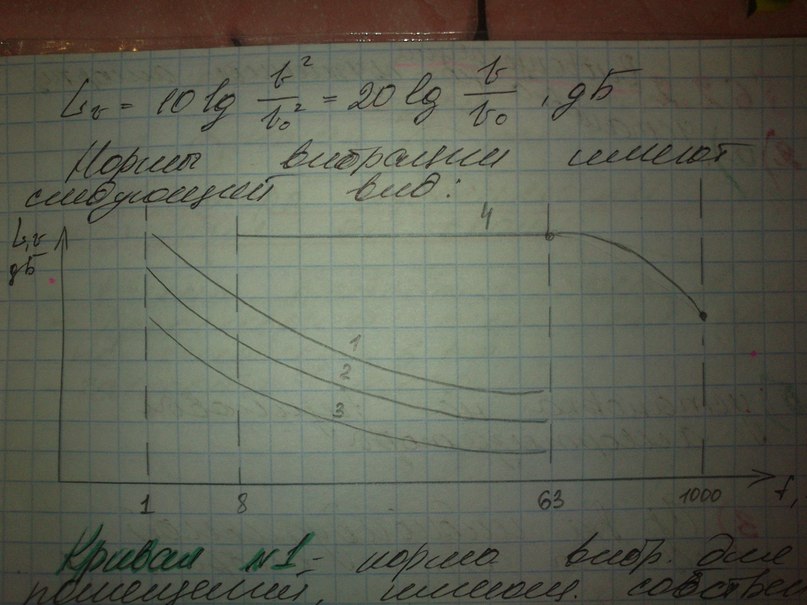 Lv = 10 lg v²/v₀² = 20 lg v/v₀, дБ
Нормы вибрации имеют
следующий вид:
L,v
дБ
4
1
2
3
1 8 63 1000 f,
Кривая №1- норма вибр. для
помещений, имеющ. собствен